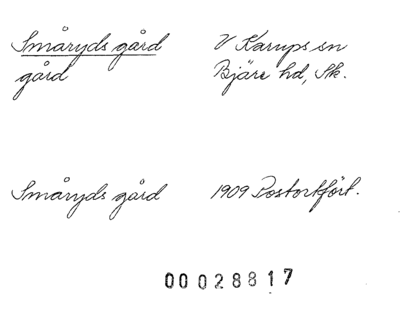 Småryds gård V Karups sn
gård Bjäre hd, Sk.
Småryds gård 1909 Postortfört.
00028817